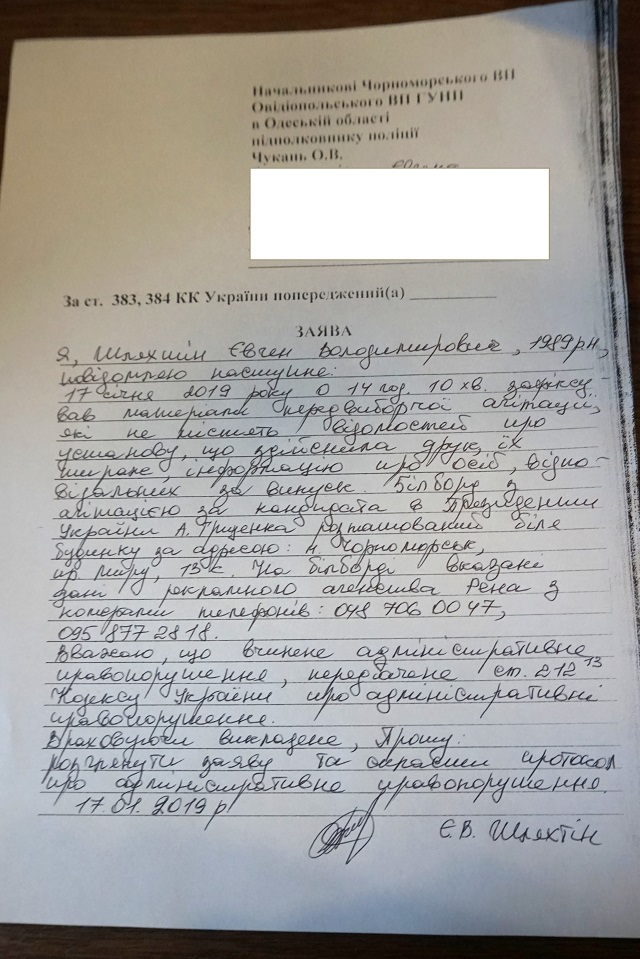 Начальникові Чорноморського ВП
Овідіопольського ВП ГУНП
в Одеській області
підполковнику поліції
Чукань О.В.
За ст. 383, 384 КК України попереджений(а)
ЗАЯВА
Я, Шляхтін Євген Володимирович, 1989 р.н,
повідомляю наступне:
17 січня 2019 року о 14 год. 10 хв. зафіксу-
вав матеріали передвиборчої агітації,
які не містять відомостей про
установу, що здійснила друк, їх
тираж, інформацію про осіб, відпо-
відальних за випуск. Білборд з
агітацією за кандидата в Президенти
України А. Гриценка розташований біля
будинку за адресою: м. Чорноморськ,
пр. Миру, 13 к. На білборді вказані
дані рекламного агенства Рена з
номерами телефонів: 048 706 00 47,
095 877 28 18.
Вважаю, що вчинене адміністративне
правопорушення, передбачене ст. 212 13
Кодексу України про адміністративні
правопорушення.
Враховуючи викладене, Прошу:
розглянути заяву та скласти протокол
про адміністративне правопорушення.
17.01.2019 р
Є.В. Шляхтін